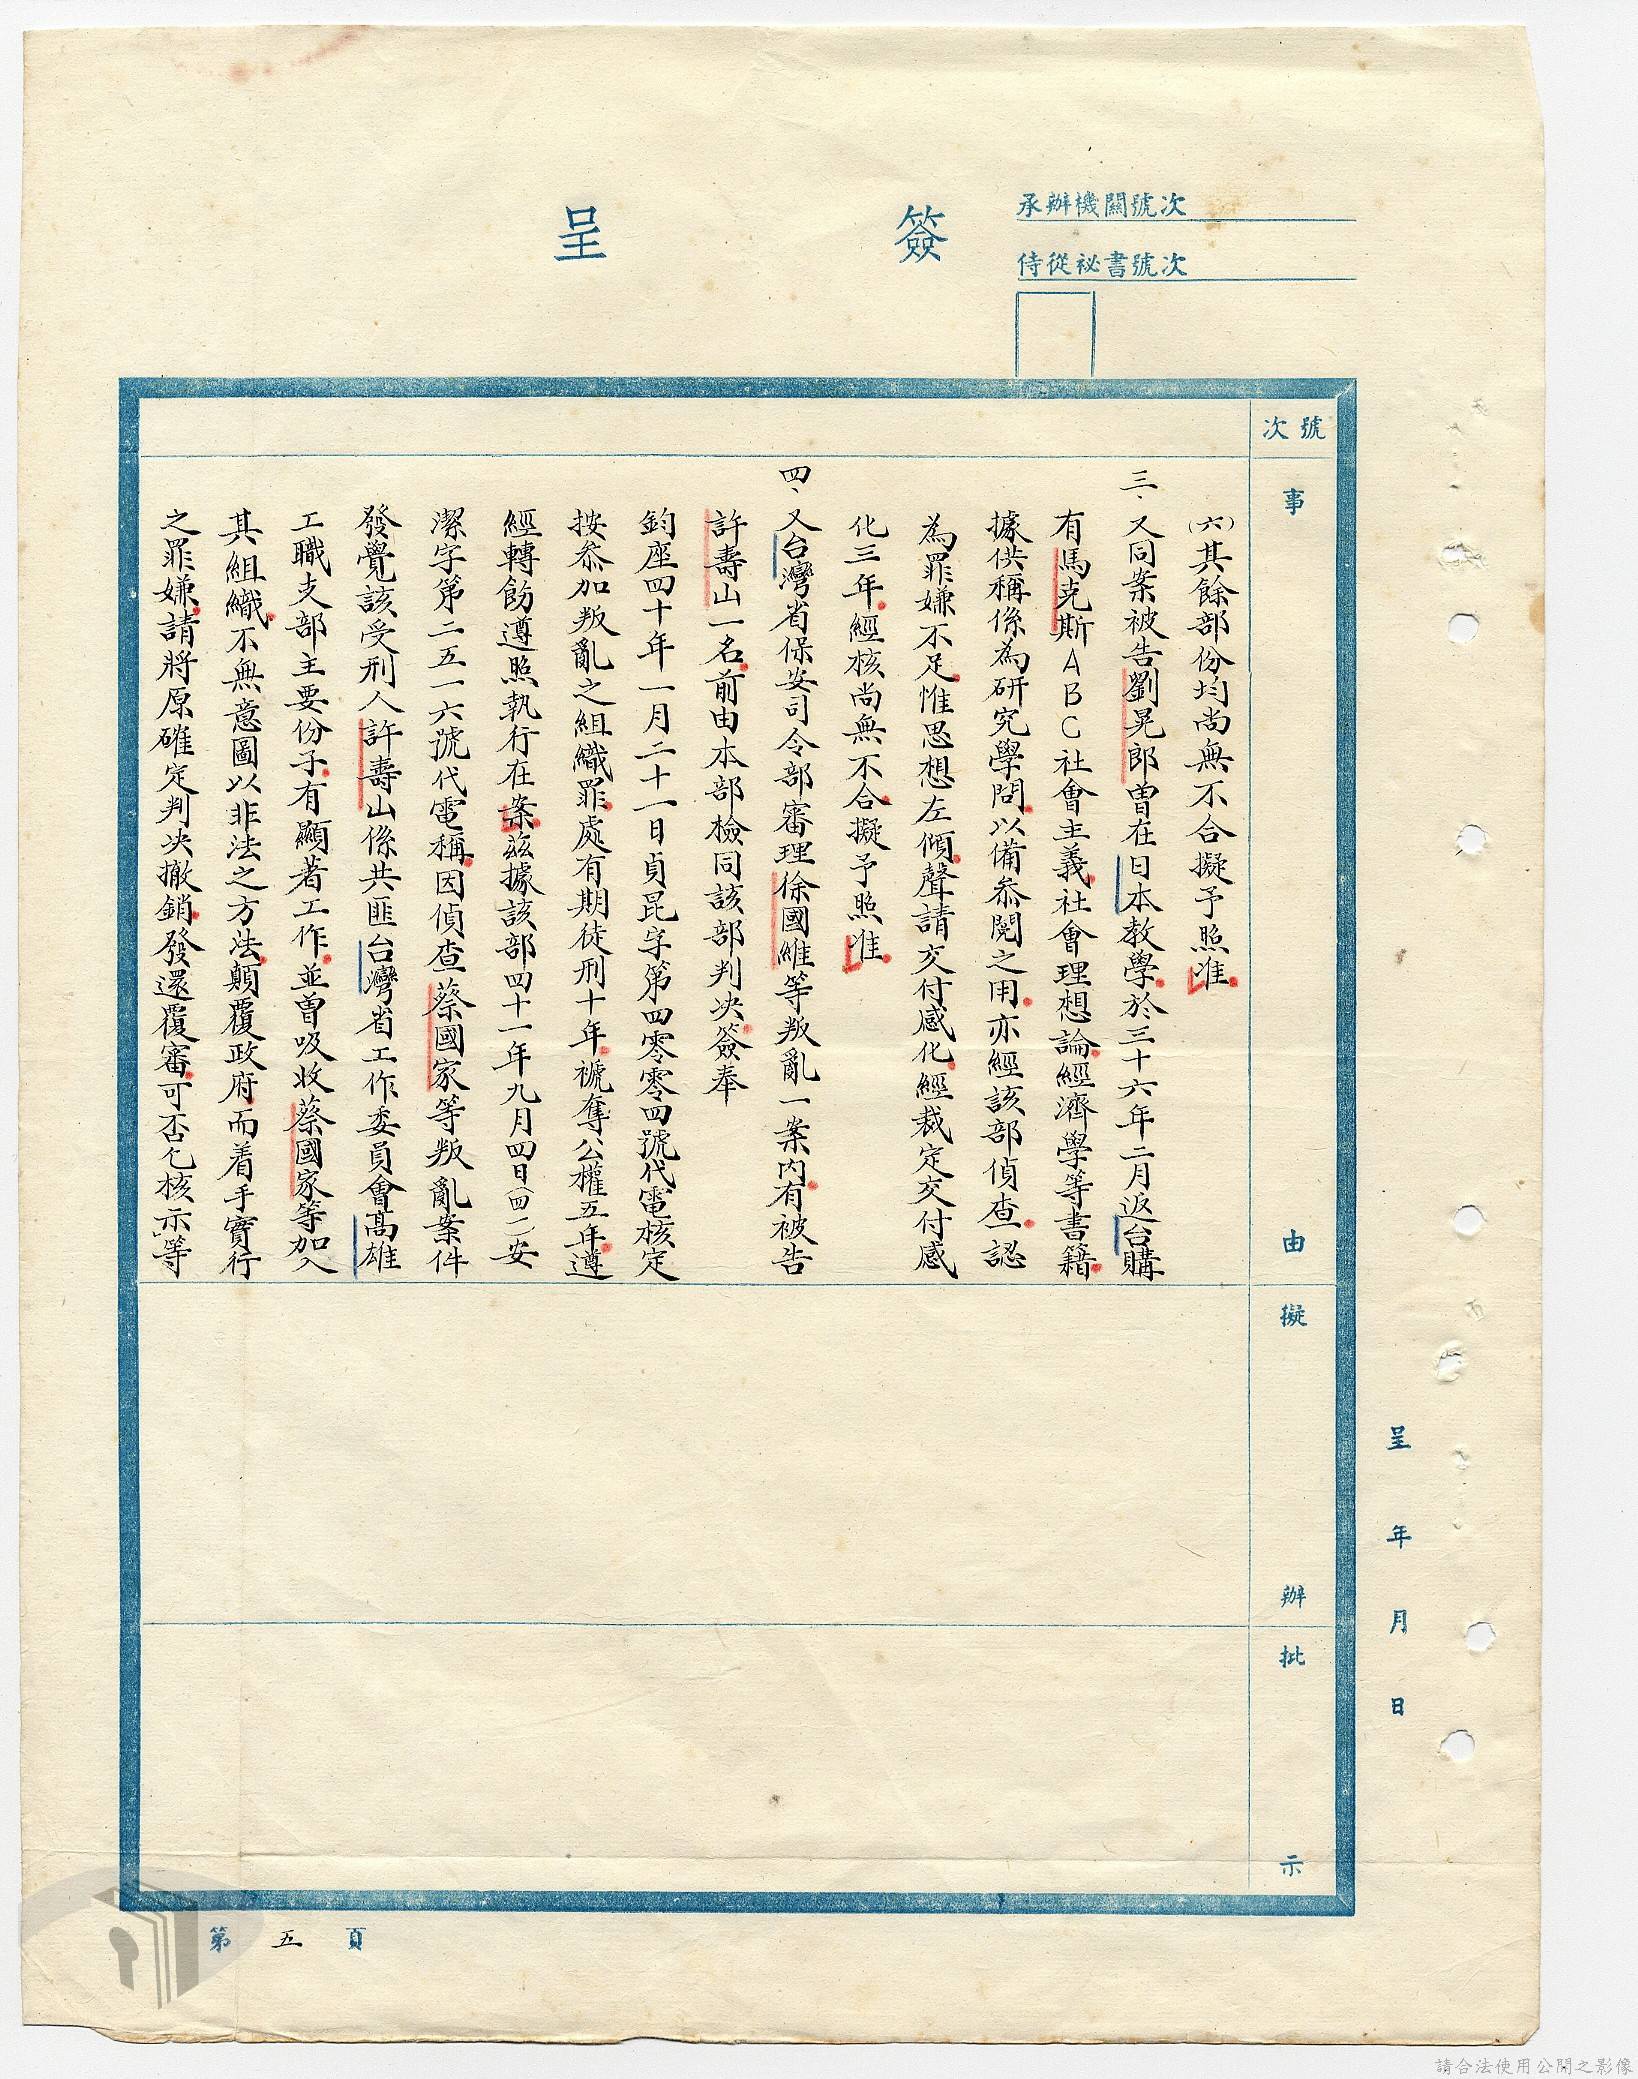 簽呈
承辦機關號次
侍從祕書號次
號次
事由
擬辦
批示
呈 年 月 日
(六)其餘部份均尚無不合擬予照准。
三、又同案被告劉晃郎曾在日本教學。於三十六年二月返台購
有馬克斯ABC社會主義。社會理想論。經濟學等書籍。
據供稱係為研究學問。以備叅閱之用。亦經該部偵查。認
為罪嫌不足。惟思想左傾。聲請交付感化。經裁定交付感
化三年。經核尚無不合。擬予照准。
四、又台灣省保安司令部審理徐國維等叛亂一案內。有被告
許壽山一名。前由本部檢同該部判決。簽奉
鈞座四十年一月二十一日貞昆字第四零零四號代電核定
按叅加叛亂之組織罪。處有期徒刑十年。褫奪公權五年。遵
經轉飭遵照執行在案。茲據該部四十一年九月四日(四一)安
潔字第二五一六號代電稱。因偵查蔡國家等叛亂案件
發覺該受刑人許壽山係共匪台灣省工作委員會高雄
工職支部主要份子。有顯著工作。並曾吸收蔡國家等加入
其組織。不無意圖以非法之方法。顛覆政府。而着手實行
之罪嫌。請將原確定判決撤銷。發還覆審。可否乞核示」等
第五頁
請合法使用公開之影像